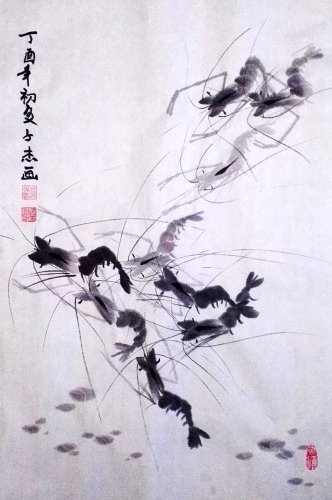 丁酉年初夏子杰画